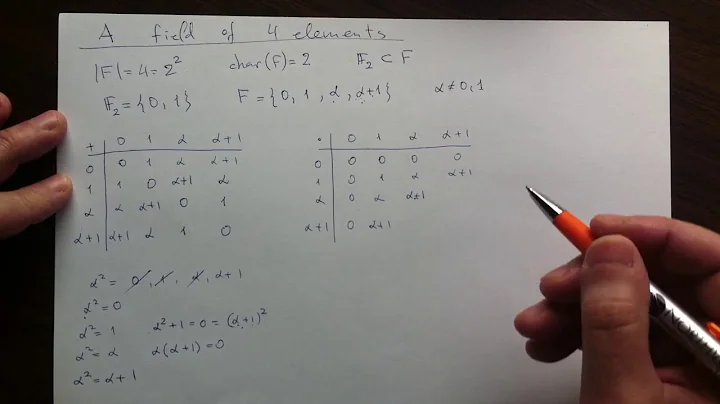 A field of 4 elements
|F| = 4 = 2² char(F) = 2 𝔽₂ ⊂ F
𝔽₂ = {0, 1} F = {0, 1, α, α+1} α ≠ 0, 1
+ 0 1 α α+1
0 0 1 α α+1
1 1 0 α+1 α
α α α+1 0 1
α+1 α+1 α 1 0
· 0 1 α α+1
0 0 0 0 0
1 0 1 α α+1
α 0 α α+1
α+1 0 α+1
α² = 0, 1, α, α+1
α² = 0
α² = 1 α²+1 = 0 = (α+1)²
α² = α α(α+1) = 0
α² = α+1